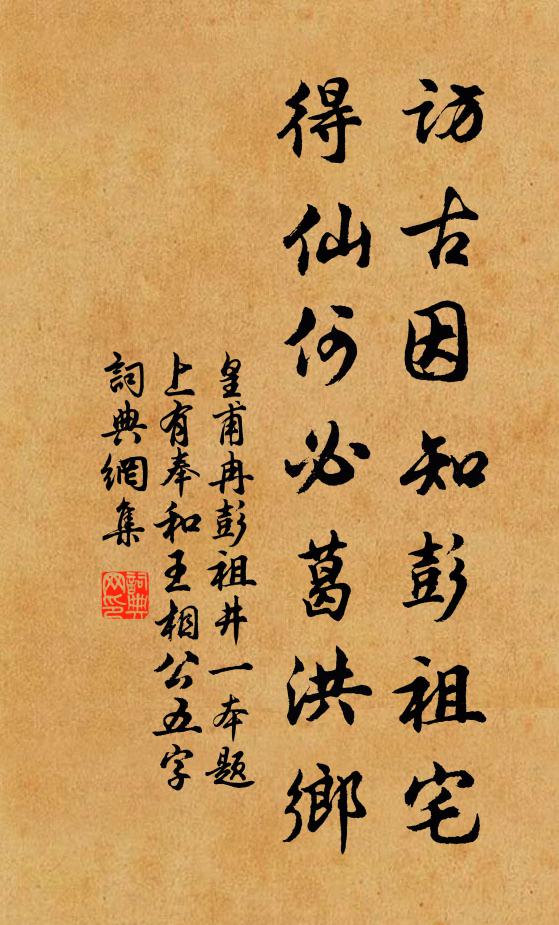 訪古因知彭祖宅
得仙何必葛洪鄉
皇甫冉彭祖井一本題
上有奉和王相公五字
詞典網集
詞典网印